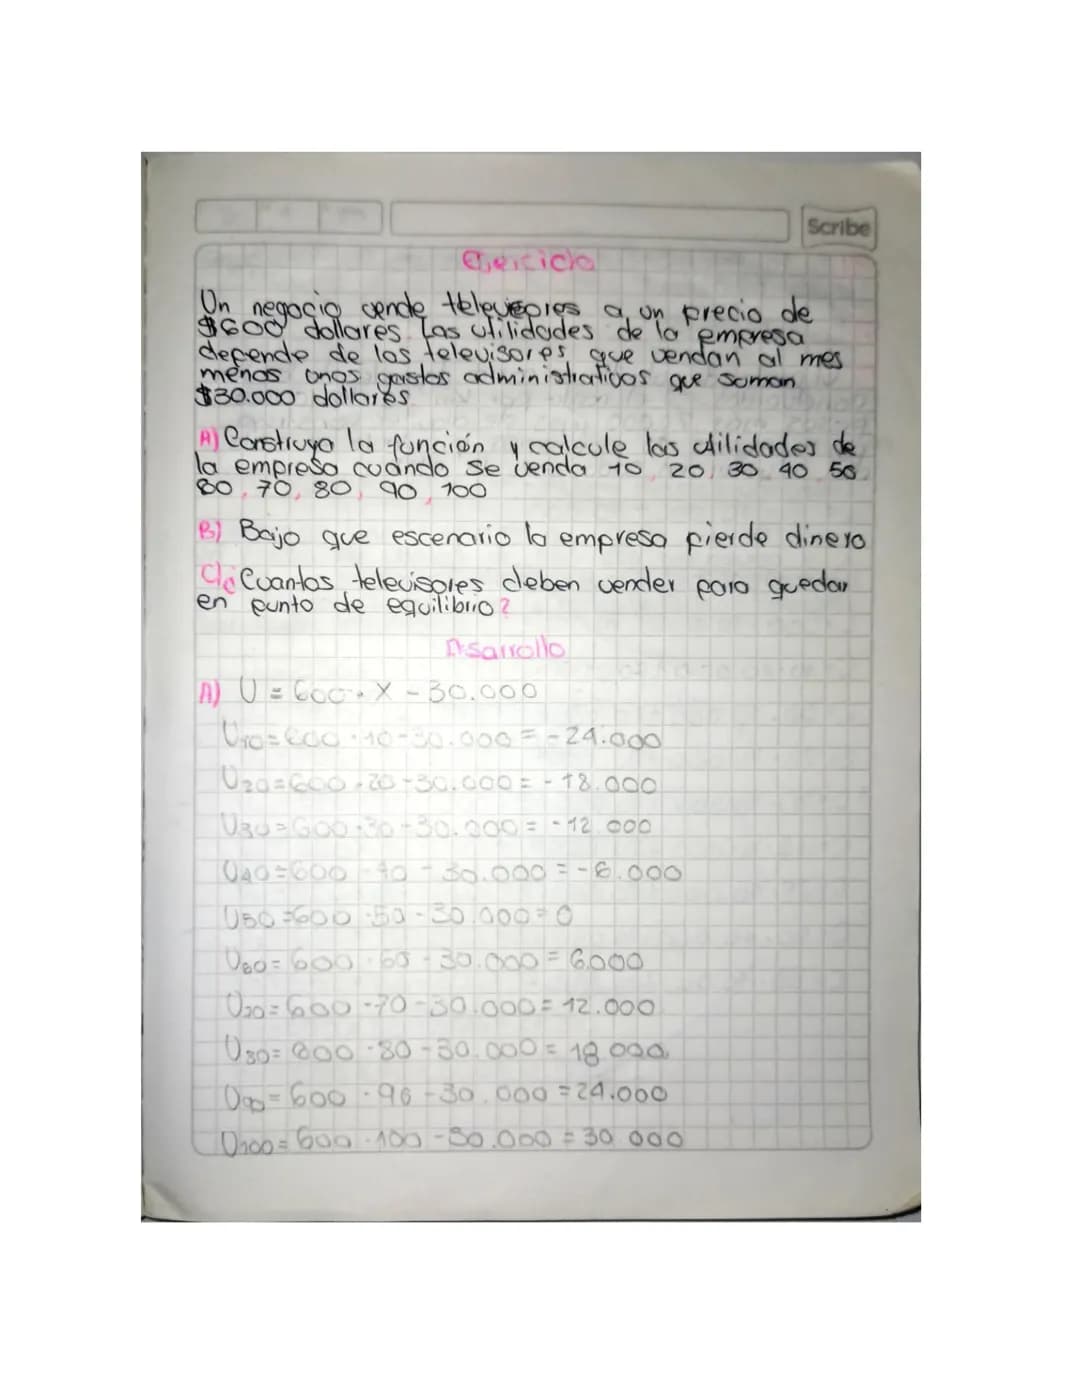 Scribe
Ejercicio
Un negocio vende televisores a un precio de
$600 dollares. Las utilidades de la empresa
depende de los televisores que vendan al mes
menos unos gastos administrativos que suman
$30.000 dollares
A) Construya la función y calcule las utilidades de
la empresa cuando se venda 10, 20, 30, 40, 50
60, 70, 80, 90, 100
B) Bajo que escenario la empresa pierde dinero
C) ¿Cuantos televisores deben vender para quedar
en punto de equilibrio?
Dsarrollo
A) U = 600 · X - 30.000
U10=600 · 10-30.000 = -24.000
U20=600 · 20-30.000 = -18.000
U30=600·30-30.000 = -12.000
U40=600 ·40 - 30.000 = -6.000
U50=600 ·50 - 30.000=0
U60=600 ·60 - 30.000 = 6.000
U70=600 ·70-30.000 = 12.000
U80=600 ·80-30.000 = 18.000
U90=600 ·90-30.000 =24.000
U100=600 ·100 -30.000 = 30.000